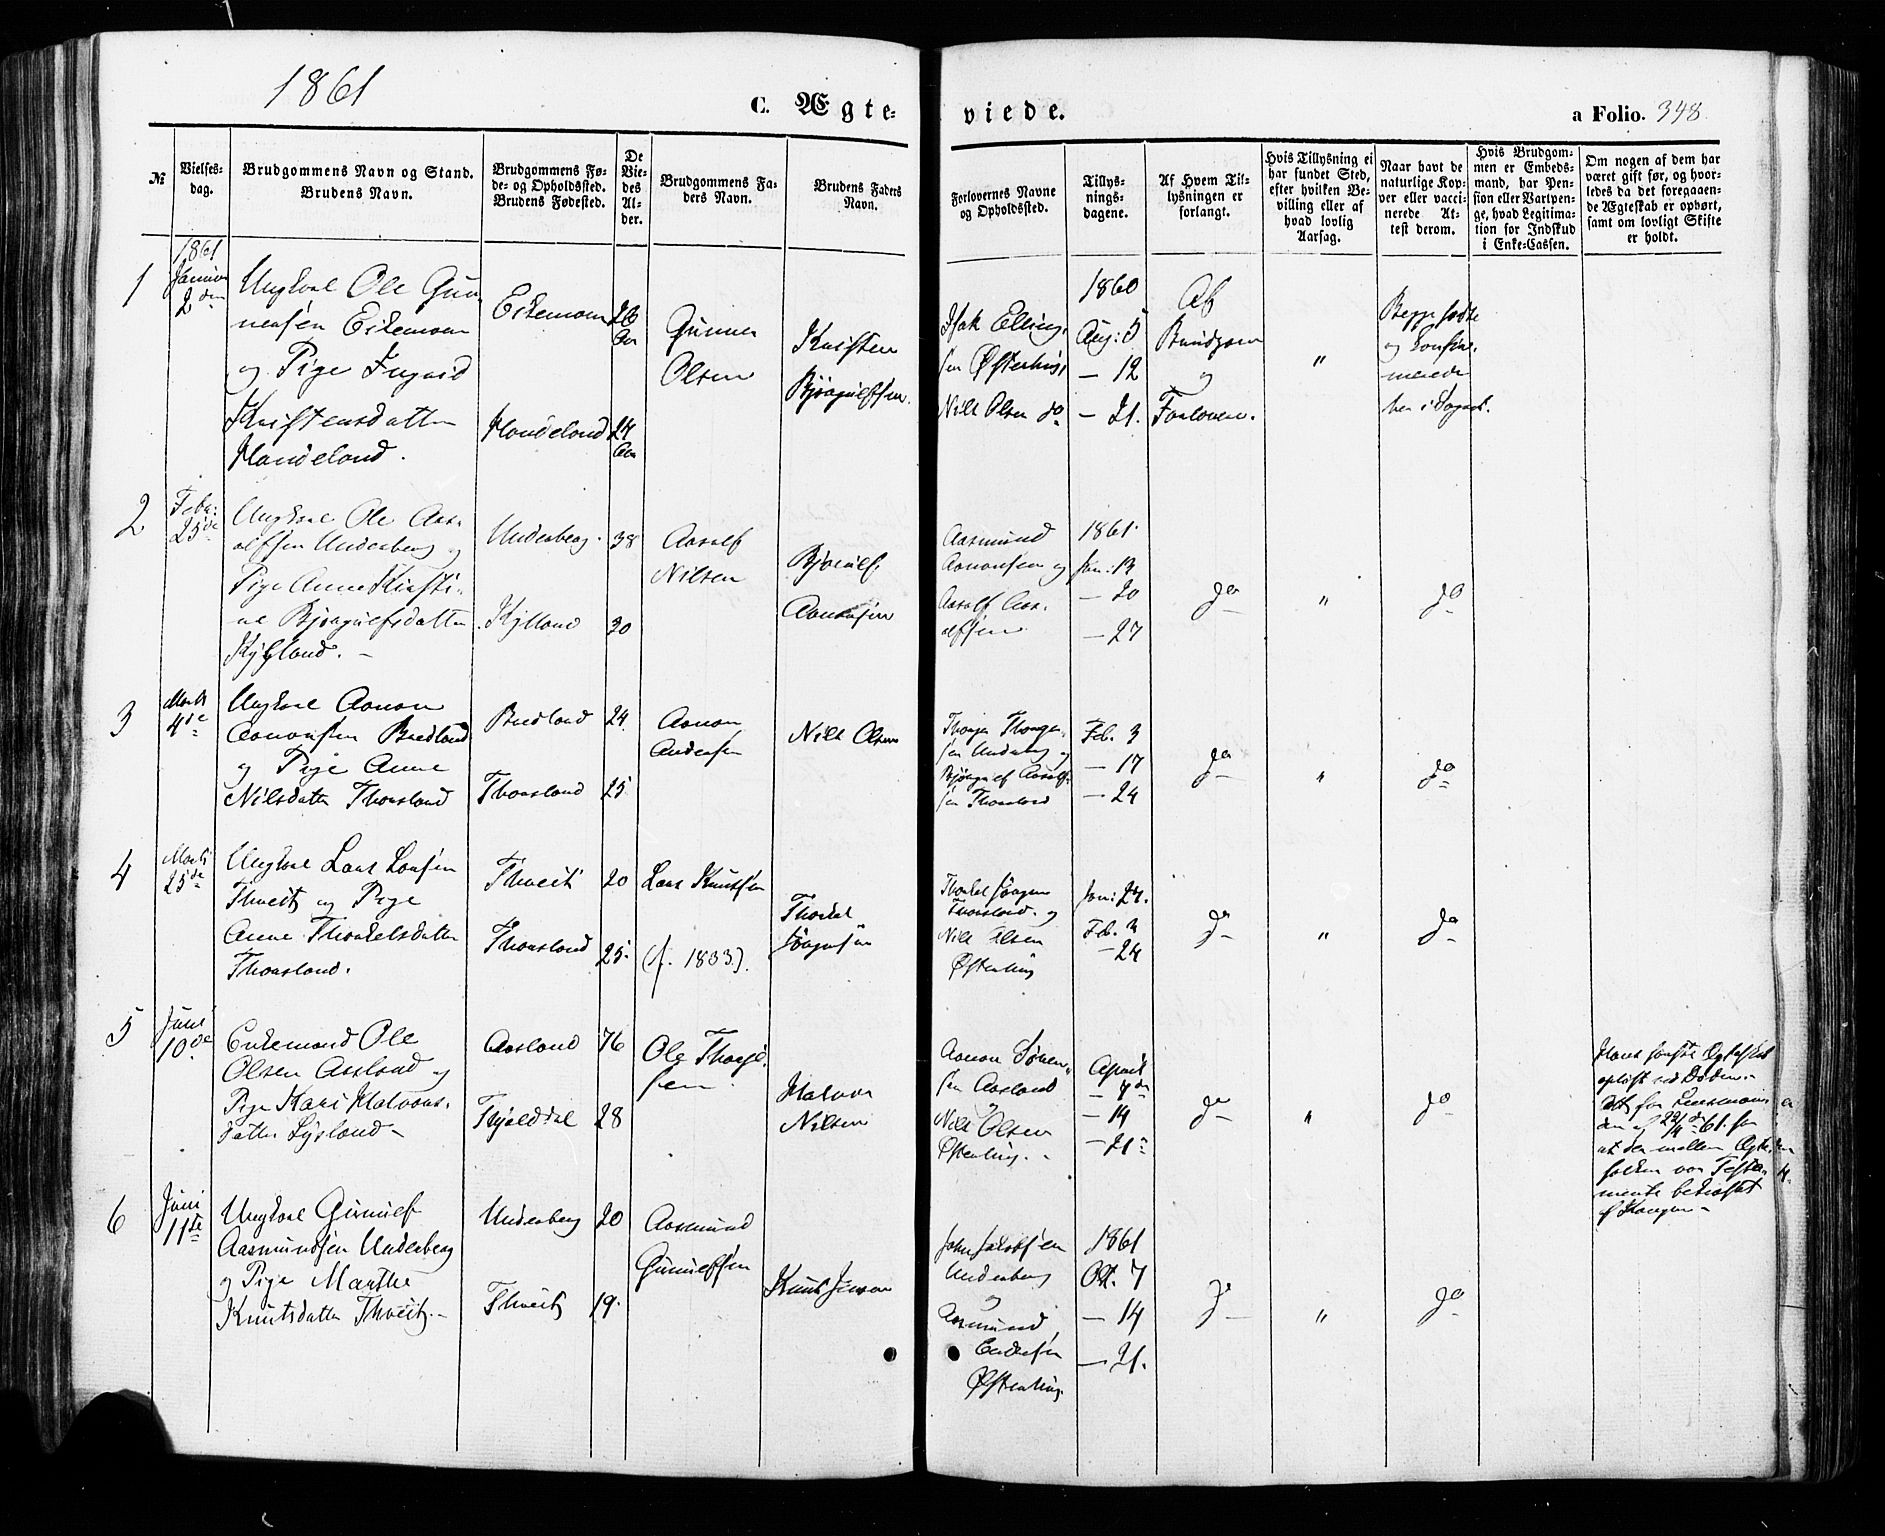 1861
C. Ægte-
viede.
a Folio. 348
№
Vielses-
dag.
Brudgommens Navn og Stand.
Brudens Navn.
Brudgommens Fø-
de- og Opholdssted.
Brudens Fødested.
De
Vie-
des
Al-
der.
Brudgommens Fa-
ders Navn.
Brudens Faders
Navn.
Forlovernes Navne
og Opholdssted.
Tillys-
nings-
dagene.
Af Hvem Til-
lysningen er
forlangt.
Hvis Tillysning ei
har fundet Sted,
efter hvilken Be-
villing eller af
hvad lovlig
Aarsag.
Naar havt de
naturlige Kop-
per eller vacci-
nerede At-
test derom.
Hvis Brudgom-
men er Embeds-
mand, har Pen-
sion eller Vartpen-
ge, hvad Legitima-
tion for Indskud
i Enke-Cassen.
Om nogen af dem har
været gift før, og hvor-
ledes da det foregaaen-
de Ægteskab er ophørt,
samt om lovligt Skifte
er holdt.
1
1861
Januar
2den
Ungkarl Ole Gun
nersen Eikemoen
og Pige Ingrid
Kristensdatter
Handeland.
Eikemoen
Handeland
26
Aar
24
Aar
Gunner
Olsen
Kristen
Bjørgulfsen.
Isak Elling
sen Østerhus,
Nils Olsen do
1860
Aug: 5
— 12
— 21.
Af
Brudgom
og
Forlover.
"
Begge fødte
og konfir-
merede
her i Sognet.
2
Febr:
25de
Ungkarl Ole Aas-
ulfsen Underberg og
Pige Anne Kirsti-
ne Bjørgulfsdatter
Kylland.
Underberg.
Kylland
38
30
Aasulf
Nilsen
Bjørulf
Aanonsen
Aasmund
Aanonsen og
Aasulf Aas-
ulfsen
1861.
Jan: 13
— 20
— 27
do
"
do
3
Marts
4de
Ungkarl Aanon
Aanonsen Bredland
og Pige Anne
Nilsdatter Thorsland
Bredland
Thorsland
24
25
Aanon
Andersen
Nils Olsen
Thorger Thorger-
sen Underberg og
Bjørgulf Aasulf-
sen Thorsland
Feb. 3
— 17
— 24
do
"
do
4
Marts
25de
Ungkarl Lars Larsen
Thveit og Pige
Anne Thorkelsdatter
Thorsland.
Thveit
Thorsland
20
25.
Lars Knutsen
(f. 1833).
Thorkel
Jørgensen
Thorkel Jørgens
Thorsland. og
Nils Olsen
Østerhus
Jan: 27.
Feb. 3
— 24
do
"
do
5
Juni
10de
Enkemand Ole
Olsen Aasland og
Pige Kari Halvors-
datter Lysland
Aasland
76
28
Ole Thorgi
sen.
Halvor
Nilsen
Aanon Søren-
sen Aasland
og
Nils Olsen
Østerhus.
April
— 7de
— 14
— 21
do
"
do
Hans første Ægteskab
opløst ved Døden.
den af 22/4 61. for
at der mellem Ægte
folkene var Testa
mente bekræftet
af Kongen
6
Juni
11te
Ungkarl Gunulf
Aasmundsen Underberg
og Pige Marthe
Knutsdatter Thveit.
Underberg
Thveit
20
19.
Aasmund
Gunulfsen
Knut Jensen
John Jakobsen
Underberg
og
Aasmund
Østerhus.
1861
Okt. 7
— 14
— 21.
do
"
do